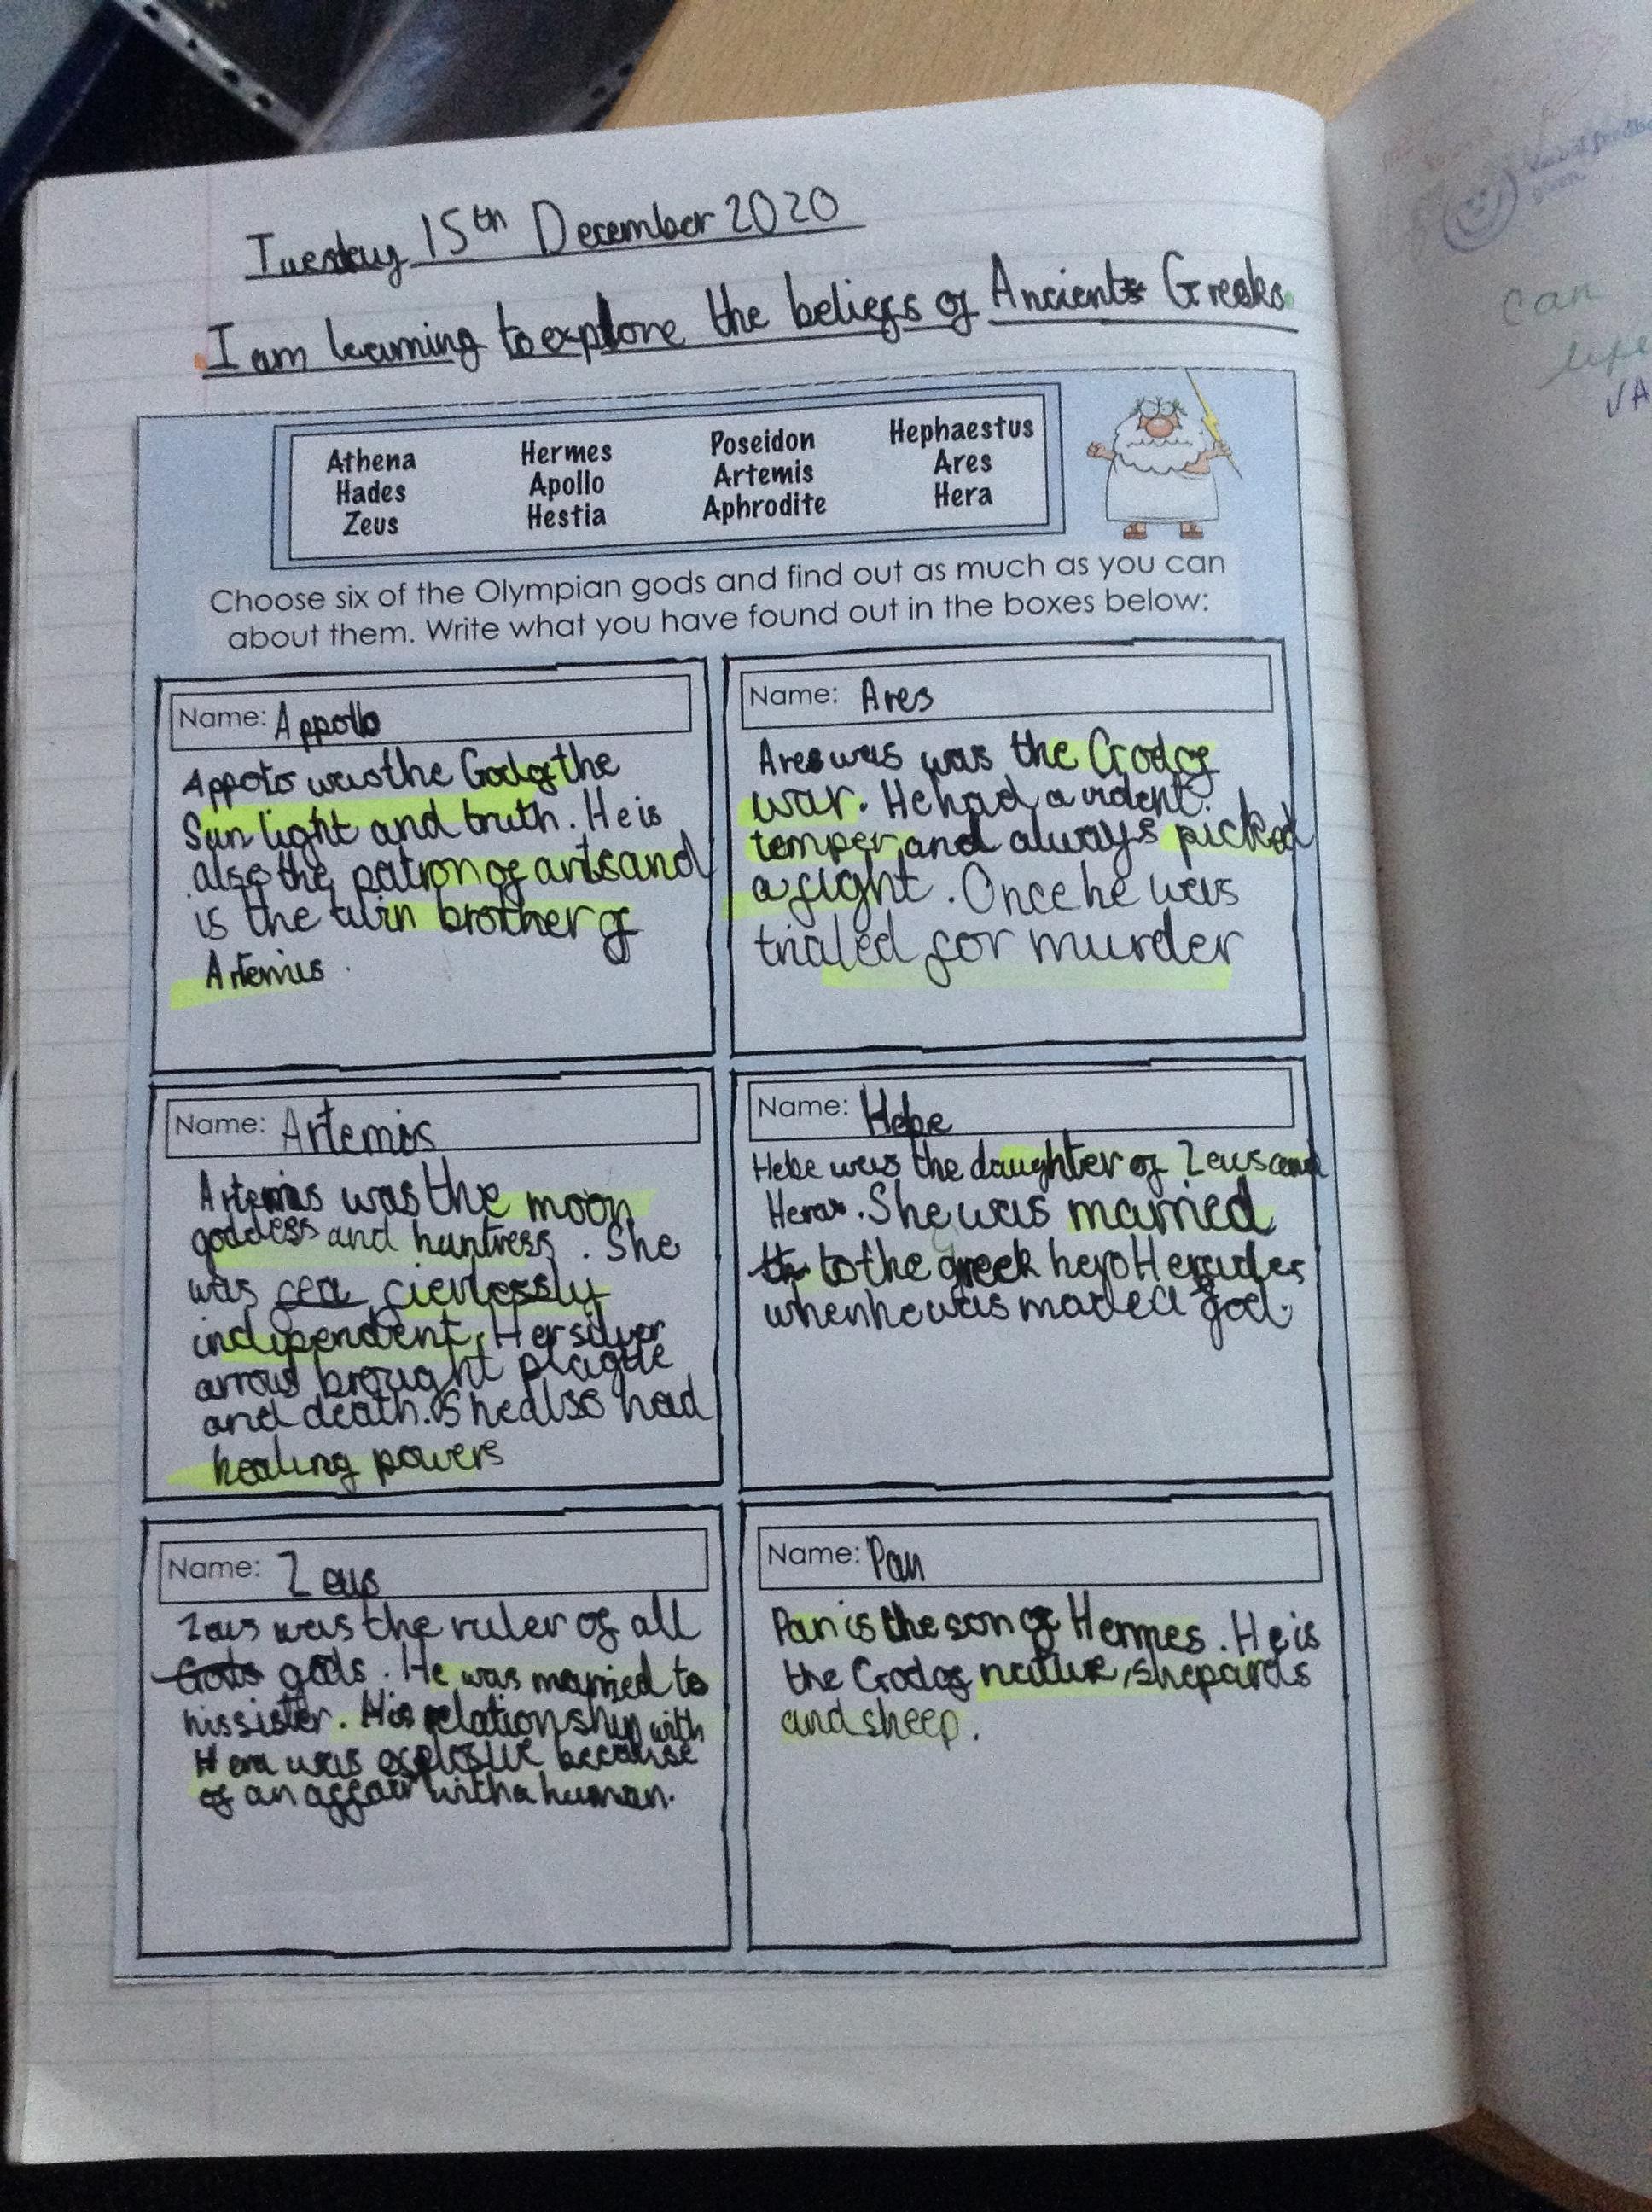 Tuesday 15th December 2020
I am learning to explore the beliefs of Ancient Greeks.
Athena Hermes Poseidon Hephaestus
Hades Apollo Artemis Ares
Zeus Hestia Aphrodite Hera
Choose six of the Olympian gods and find out as much as you can
about them. Write what you have found out in the boxes below:
Name: Appollo
Appolo was the God of the
Sun light and truth. He is
also the patron of arts and
is the twin brother of
Artemis.
Name: Ares
Ares was was the God of
war. He had a violent
temper, and always picked
a fight. Once he was
trialed for murder
Name: Artemis
Artemis was the moon
goddess and huntress. She
was gierlessly
indipendent. Her silver
arrow brought plague
and death. She also had
healing powers
Name: Hebe
Hebe was the daughter of Zeus and
Hera. She was married
to the greek hero Hercules
when he was made a god.
Name: Zeus
Zeus was the ruler of all
Gods gods. He was married to
his sister. His relationship with
Hera was explosive because
of an affair with a human.
Name: Pan
Pan is the son of Hermes. He is
the God of nature, shepards
and sheep.
Verbal
given
can
life
VA